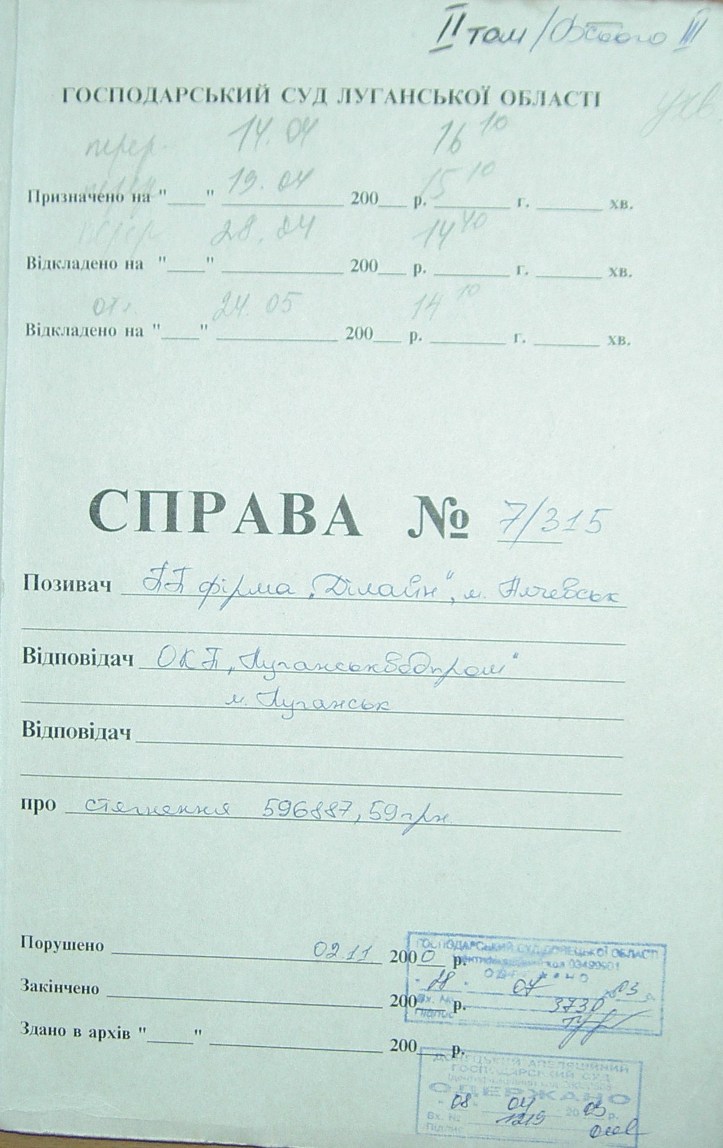 II том / Всього III
ГОСПОДАРСЬКИЙ СУД ЛУГАНСЬКОЇ ОБЛАСТІ
перер. 14.04 16 10
Призначено на "____" 19.04 200___ р. 15 10 г. ______ хв.
перер. 28.04 14 40
Відкладено на "____" ______ 200___ р. ______ г. ______ хв.
24.05 14 10
Відкладено на "____" ______ 200___ р. ______ г. ______ хв.
СПРАВА № 7/315
Позивач ПП фірма „Ділайн", м. Алчевськ
Відповідач ОКП „Луганськводпром"
м. Луганськ
Відповідач
про стягнення 596887,59 грн
Порушено 02.11 2000 р.
Закінчено ______ 200___ р.
Здано в архів "____" ______ 200___ р.
ГОСПОДАРСЬКИЙ СУД ДОНЕЦЬКОЇ ОБЛАСТІ
код 03499901
ОДЕРЖАНО
18. 04 03
Вх. № 3730
Підпис
ДОНЕЦЬКИЙ АПЕЛЯЦІЙНИЙ
ГОСПОДАРСЬКИЙ СУД
ОДЕРЖАНО
"08" 04 2003 р.
Вх. № 1219
Підпис